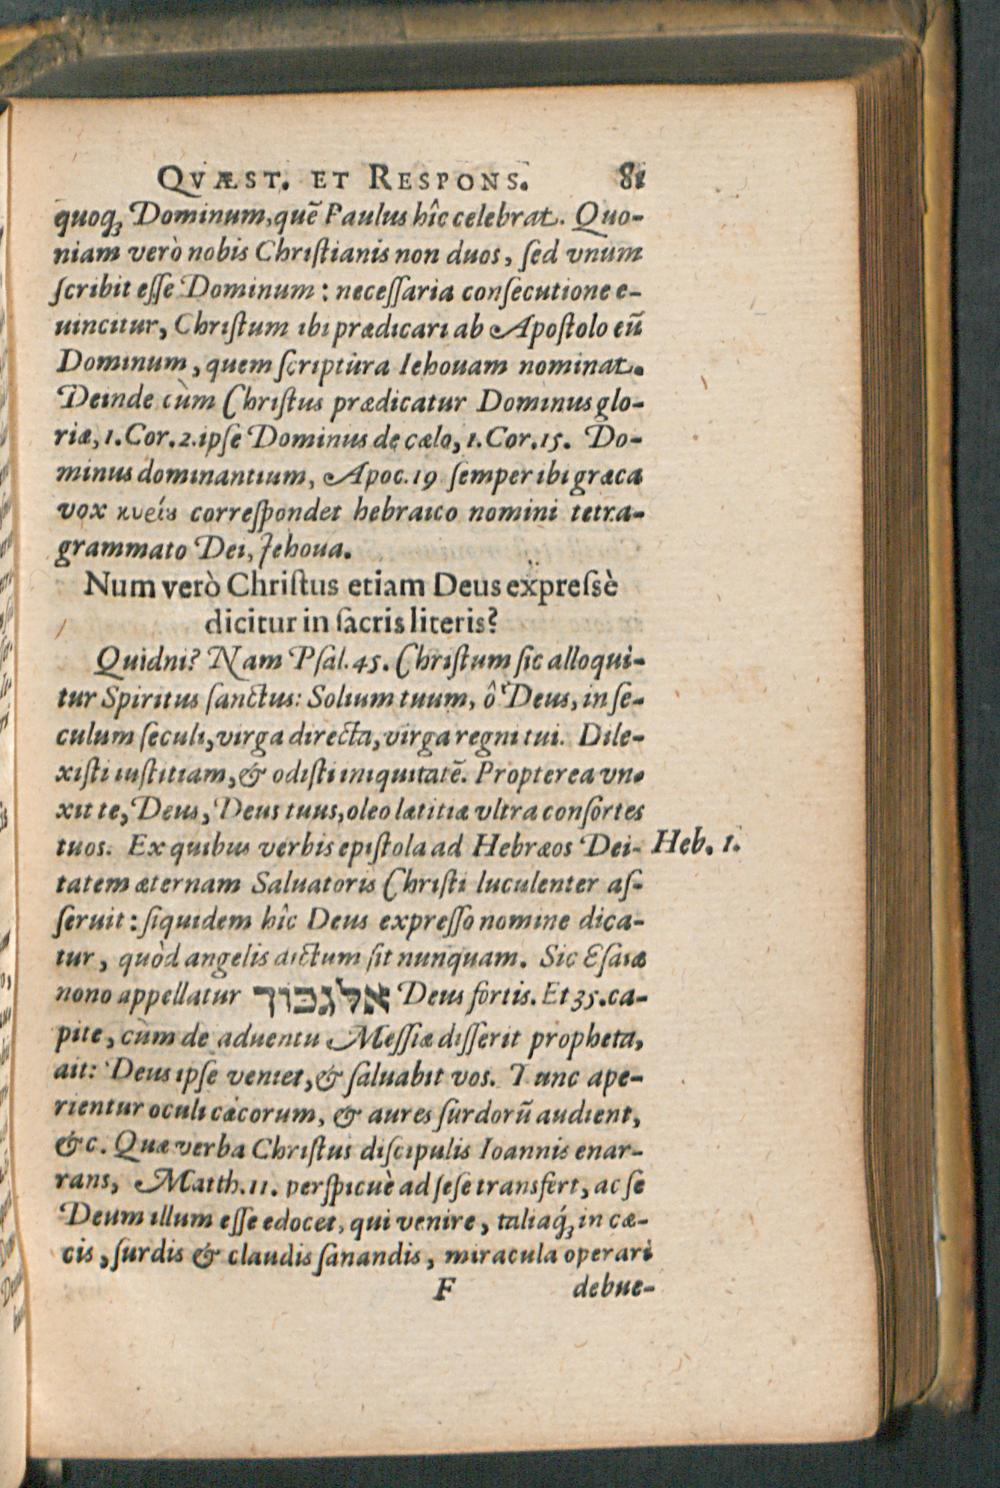 QVÆST. ET RESPONS. 81
quoq; Dominum, quẽ Paulus hîc celebrat. Quo-
niam verò nobis Christianis non duos, sed vnum
scribit esse Dominum: necessaria consecutione e-
uincitur, Christum ibi prædicari ab Apostolo eũ
Dominum, quem scriptura Iehouam nominat.
Deinde cùm Christus prædicatur Dominus glo-
riæ, 1. Cor. 2. ipse Dominus de cælo, 1. Cor. 15. Do-
minus dominantium, Apoc. 19 semper ibi græca
vox κυρίȣ correspondet hebraico nomini tetra-
grammato Dei, Jehoua.
Num verò Christus etiam Deus expressè
dicitur in sacris literis?
Quidni? Nam Psal. 45. Christum sic alloqui-
tur Spiritus sanctus: Solium tuum, ô Deus, in se-
culum seculi, virga directa, virga regni tui. Dile-
xisti iustitiam, & odisti iniquitatẽ. Propterea vn-
xit te, Deus, Deus tuus, oleo lætitiæ vltra consortes
tuos. Ex quibus verbis epistola ad Hebræos Dei- Heb. 1.
tatem æternam Saluatoris Christi luculenter as-
seruit: siquidem hîc Deus expresso nomine dica-
tur, quòd angelis dictum sit nunquam. Sic Esaiæ
nono appellatur אלגבוך Deus fortis. Et 35. ca-
pite, cùm de aduentu Messiæ disserit propheta,
ait: Deus ipse veniet, & saluabit vos. Tunc ape-
rientur oculi cæcorum, & aures surdorũ audient,
&c. Quæ verba Christus discipulis Ioannis enar-
rans, Matth. 11. perspicuè ad sese transfert, ac se
Deum illum esse edocet, qui venire, taliaq́; in cæ-
cis, surdis & claudis sanandis, miracula operari
F debue-